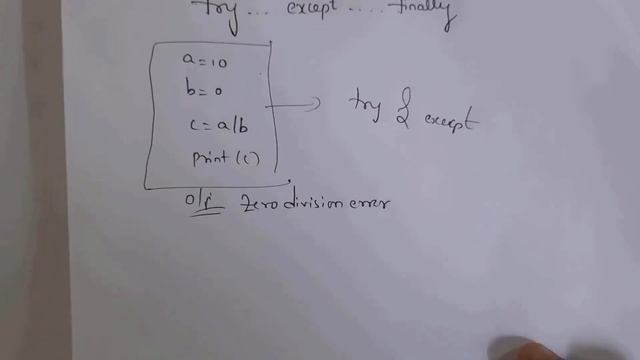 try ... except .... finally
a = 10
b = 0
c = a/b
print (c)
try & except
o/p zero division error